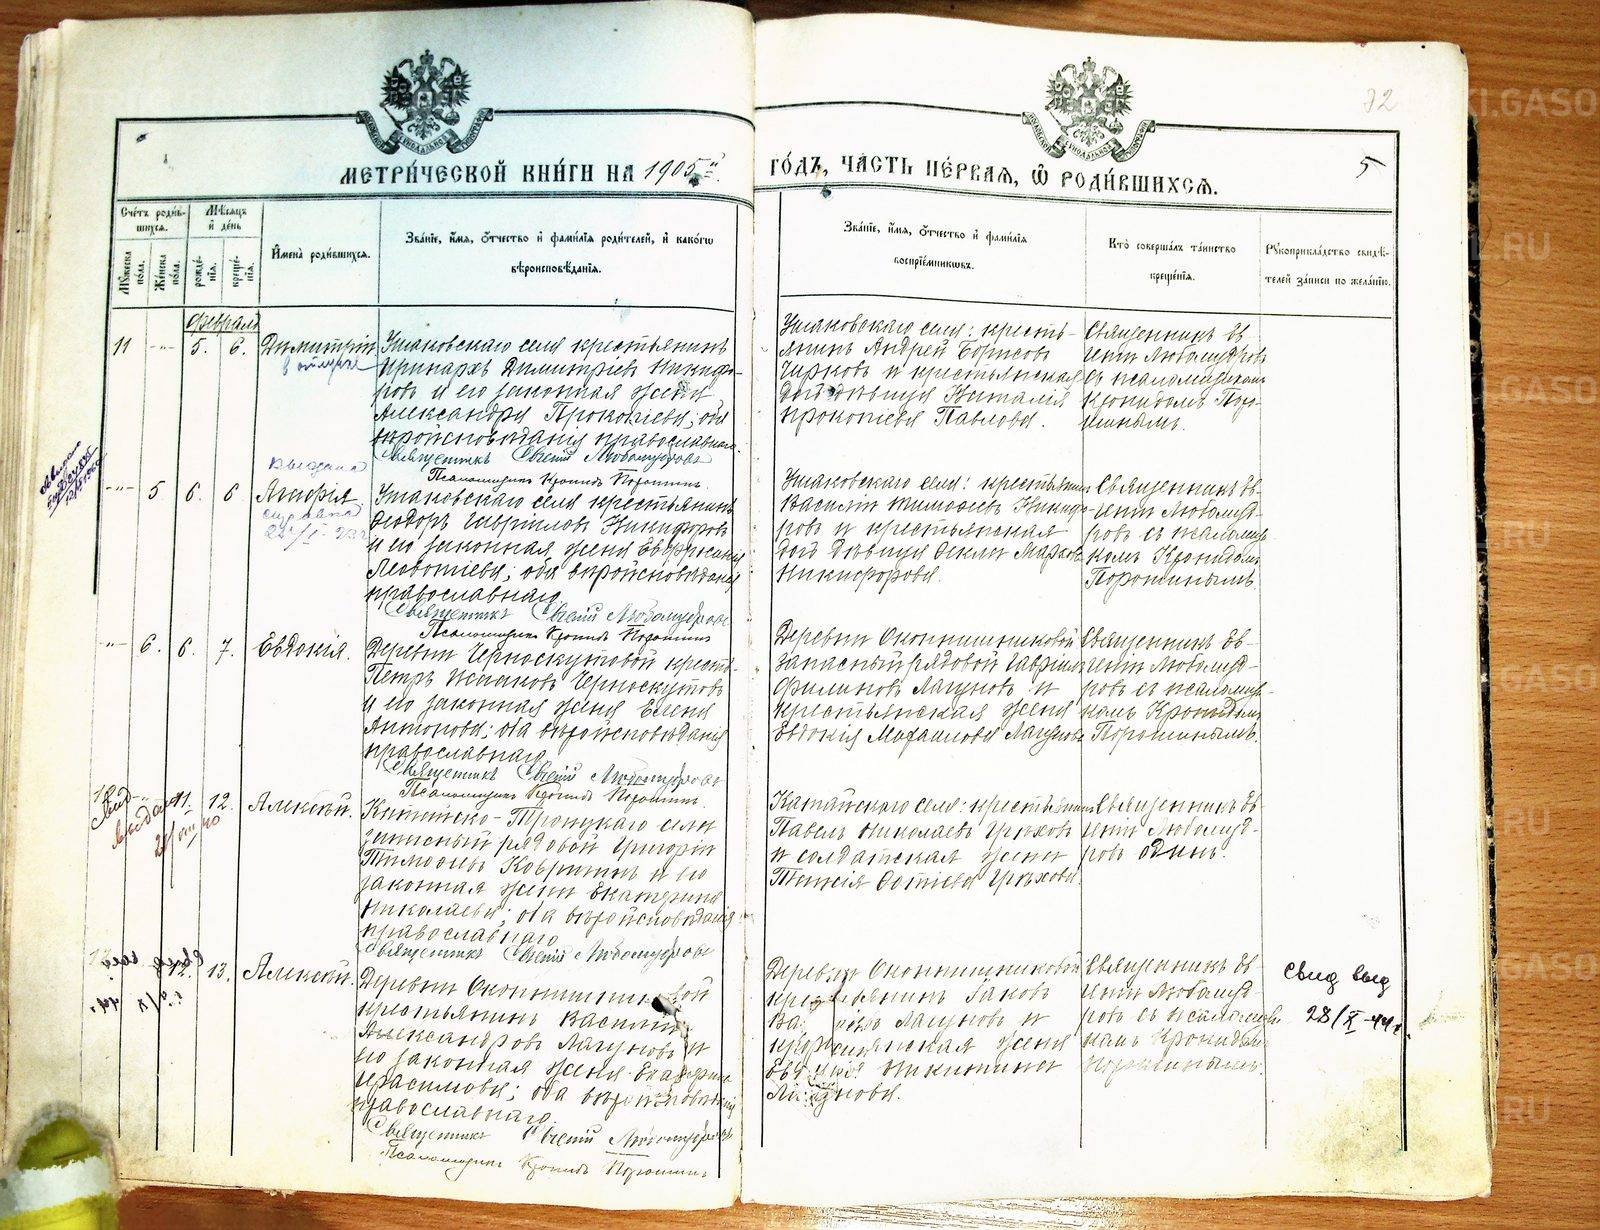 МЕТРИ́ЧЕСКОЙ КНИ́ГИ НА 1905й
ГО́ДЪ, ЧА́СТЬ ПЕ́РВАЯ, Ѽ РОДИ́ВШИХСѦ.
32
5
Сче́тъ роди́в-
шихся.
Мѣ́сяцъ
и де́нь
Му́жеска
по́ла.
Же́нска
по́ла.
рожде́-
нія.
креще́-
нія.
И҆мена̀ роди́вшихся.
Зва́ніе, и҆́мя, ѻ҆́тчество и҆ фами́лія роди́телей, и҆ како́гѡ
вѣроисповѣ́данія.
Зва́ніе, и҆́мя, ѻ҆́тчество и҆ фами́лія
воспріе́мниковъ.
Кто̀ соверша́лъ та́инство
креще́нія.
Рꙋкоприкла́дство свидѣ́-
телей за́писи по жела́нію.
Февраля
11 -"- 5. 6. Димитрій
Ушаковскаго села крестьянинъ
Иринархъ Димитріевъ Никифо-
ровъ и его законная жена
Александра Прокопіева; оба
вѣроисповѣданія православнаго.
Священникъ Евгеній Любомудровъ
Псаломщикъ Кронидъ Порошинъ.
Ушаковскаго села: кресть-
янинъ Андрей Борисовъ
Чирковъ и крестьянская
дочь дѣвица Наталія
Прокопіева Павлова.
Священникъ Ев-
геній Любомудровъ
съ псаломщикомъ
Кронидомъ Поро-
шинымъ.
выдана
-"- 5 6. 6 Агафія
справка
Ушаковскаго села крестьянинъ
Ѳеодоръ Гавриловъ Никифоровъ
и его законная жена Евфросинія
Леонтіева; оба вѣроисповѣданія
православнаго.
Священникъ Евгеній Любомудровъ
Псаломщикъ Кронидъ Порошинъ
Ушаковскаго села: крестьянинъ
Василій Тимоѳеевъ Никифо-
ровъ и крестьянская
дочь дѣвица Ѳекла Маркова
Никифорова.
Священникъ Ев-
геній Любомуд-
ровъ съ псаломщи-
комъ Кронидомъ
Порошинымъ.
-"- 6. 6. 7. Евдокія.
Деревни Черноскутовой кресть-
Петръ Исааковъ Черноскутовъ
и его законная жена Елена
Антонова; оба вѣроисповѣданія
православнаго.
Священникъ Евгеній Любомудровъ
Псаломщикъ Кронидъ Порошинъ.
Деревни Оконишниковой
запасный рядовой Гавріилъ
Филиновъ Лагуновъ и
крестьянская жена
Евдокія Михаилова Лагунова
Священникъ Ев-
геній Любомуд-
ровъ съ псаломщи-
комъ Кронидомъ
Порошинымъ.
11. 12. Алексѣй.
выдано
Троицкаго села
запасный рядовой Григорій
Тимоѳеевъ Ковригинъ и его
законная жена Екатерина
Николаева; оба вѣроисповѣданія
православнаго
Священникъ Евгеній Любомудровъ
Катайскаго села: крестьянинъ
Павелъ Николаевъ Грѣховъ
и солдатская жена
Таисія Фотіева Грѣхова.
Священникъ Ев-
геній Любомуд-
ровъ одинъ.
12. 13. Алексѣй.
Деревни
крестьянинъ Василій
Александровъ Лагуновъ и
его законная жена Екатерина
Герасимова; оба вѣроисповѣданія
православнаго
Священникъ Евгеній Любомудровъ
Псаломщикъ Кронидъ Порошинъ
Деревни Оконишниковой
крестьянинъ Іаковъ
Лагуновъ и
жена
Никитина
Священникъ Ев-
геній Любомуд-
ровъ съ псаломщи-
комъ Кронидомъ
Порошинымъ.
Свид выд
28/X-44г.